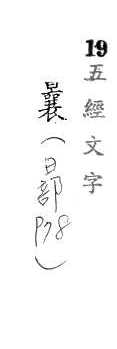 19五經文字
曩（日部P78）